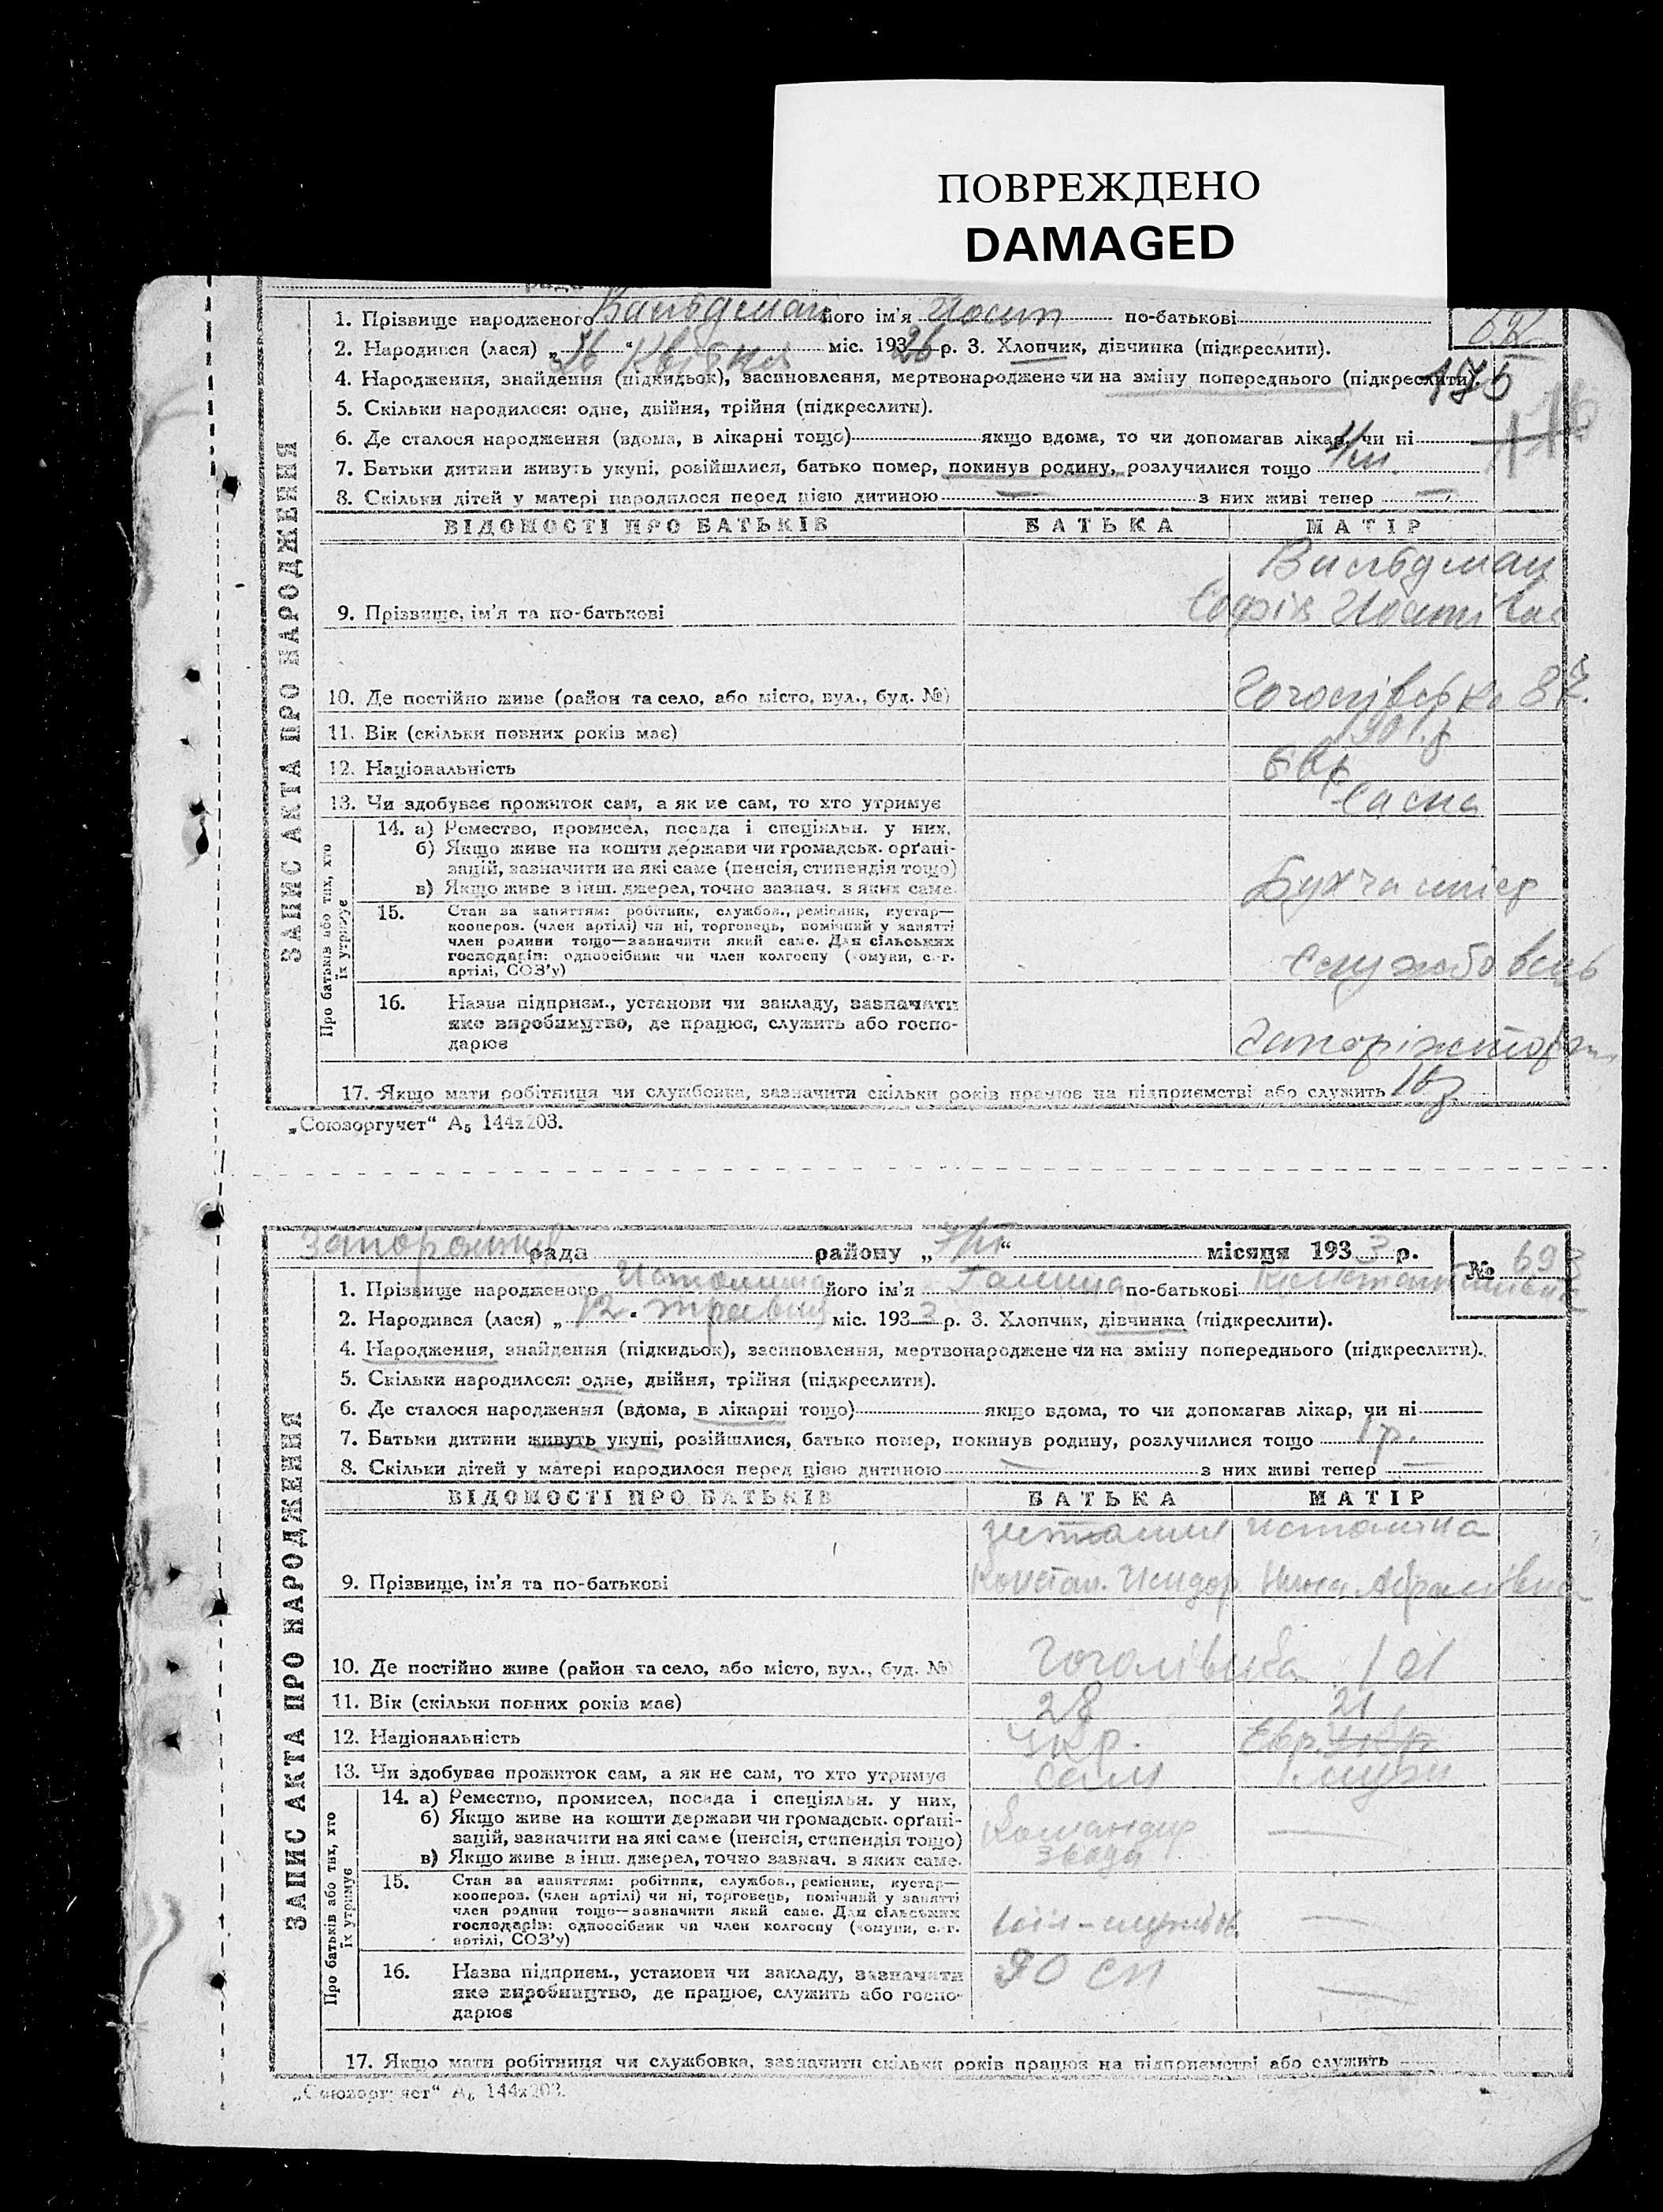 ПОВРЕЖДЕНО
DAMAGED
рада
1. Прізвище народженого Вальдман його ім'я Йосип по-батькові
2. Народився (лася) „ 26 “ квітня міс. 193 26 р. 3. Хлопчик, дівчинка (підкреслити).
4. Народження, знайдення (підкидьок), засиновлення, мертвонароджене чи на зміну попереднього (підкреслити).
175
5. Скільки народилося: одне, двійня, трійня (підкреслити).
116
6. Де сталося народження (вдома, в лікарні тощо) якщо вдома, то чи допомагав лікар, чи ні
7. Батьки дитини живуть укупі, розійшлися, батько помер, покинув родину, розлучилися тощо
8. Скільки дітей у матері народилося перед цією дитиною — з них живі тепер —
ВІДОМОСТІ ПРО БАТЬКІВ БАТЬКА МАТІР
Вальдман
9. Прізвище, ім'я та по-батькові Софія Йосипівна
10. Де постійно живе (район та село, або місто, вул., буд. №) Гоголівська
11. Вік (скільки повних років має) 1901 р
12. Національність євр
13. Чи здобуває прожиток сам, а як не сам, то хто утримує Сама
14. а) Ремество, промисел, посада і спеціяльн. у них.
б) Якщо живе на кошти держави чи громадськ. орґані-
зацій, зазначити на які саме (пенсія, стипендія тощо)
в) Якщо живе з інш. джерел, точно зазнач. з яких саме.
Бухгалтер
15. Стан за заняттям: робітник, службов., ремісник, кустар—
кооперов. (член артілі) чи ні, торговець, помічний у занятті
член родини тощо—зазначити який саме. Для сільських
господарів: одноосібник чи член колгоспу (комуни, с.-г.
артілі, СОЗ'у)
Службовець
16. Назва підприєм., установи чи закладу, зазначати
яке виробництво, де працює, служить або госпо-
дарює
Запоріжторг
17. Якщо мати робітниця чи службовка, зазначити скільки років працює на підприємстві або служить
ЗАПИС АКТА ПРО НАРОДЖЕННЯ
Про батьків або тих, хто
їх утримує
„Союзоргучет“ А₅ 144х203.
рада району „ “ місяця 193 3 р.
№ 693
1. Прізвище народженого Истомина його ім'я Галина по-батькові
2. Народився (лася) „ 12 “ травня міс. 193 3 р. 3. Хлопчик, дівчинка (підкреслити).
4. Народження, знайдення (підкидьок), засиновлення, мертвонароджене чи на зміну попереднього (підкреслити).
5. Скільки народилося: одне, двійня, трійня (підкреслити).
6. Де сталося народження (вдома, в лікарні тощо) якщо вдома, то чи допомагав лікар, чи ні
7. Батьки дитини живуть укупі, розійшлися, батько помер, покинув родину, розлучилися тощо 1 р.
8. Скільки дітей у матері народилося перед цією дитиною — з них живі тепер —
ВІДОМОСТІ ПРО БАТЬКІВ БАТЬКА МАТІР
Истомин Истоміна
9. Прізвище, ім'я та по-батькові Констан. Исидор. Нина Абрамівна
10. Де постійно живе (район та село, або місто, вул., буд. №) Гоголівська 101
11. Вік (скільки повних років має) 28 21
12. Національність Укр. Євр. Укр.
13. Чи здобуває прожиток сам, а як не сам, то хто утримує сам
14. а) Ремество, промисел, посада і спеціяльн. у них,
б) Якщо живе на кошти держави чи громадськ. орґані-
зацій, зазначити на які саме (пенсія, стипендія тощо)
в) Якщо живе з інш. джерел, точно зазнач. з яких саме.
Командир —
звода
15. Стан за заняттям: робітник, службов., ремісник, кустар—
кооперов. (член артілі) чи ні, торговець, помічний у занятті
член родини тощо—зазначити який саме. Для сільських
господарів: одноосібник чи член колгоспу (комуни, с.-г.
артілі, СОЗ'у)
—
16. Назва підприєм., установи чи закладу, зазначати
яке виробництво, де працює, служить або госпо-
дарює
90 сп —
17. Якщо мати робітниця чи службовка, зазначити скільки років працює на підприємстві або служить
ЗАПИС АКТА ПРО НАРОДЖЕННЯ
Про батьків або тих, хто
їх утримує
„Союзоргучет“ А₅ 144х203.